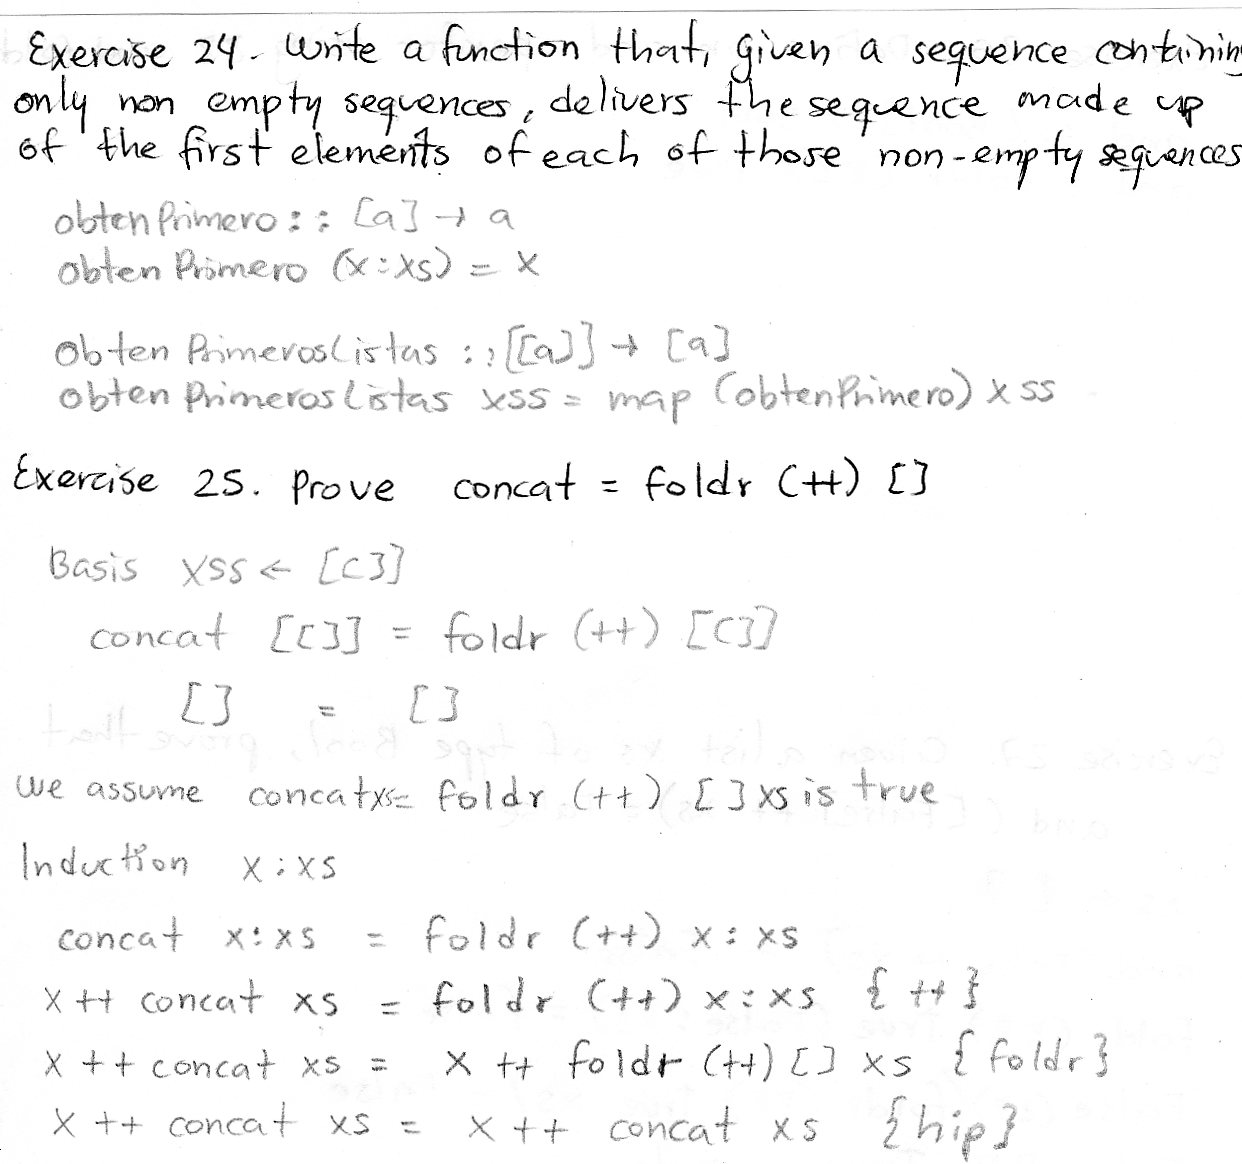 Exercise 24. Write a function that, given a sequence containing
only non empty sequences, delivers the sequence made up
of the first elements of each of those non-empty sequences
obtenPrimero :: [a] → a
obtenPrimero (x:xs) = x
obtenPrimerosListas :: [[a]] → [a]
obtenPrimerosListas xss = map (obtenPrimero) xss
Exercise 25. Prove concat = foldr (++) []
Basis xss ← [[]]
concat [[]] = foldr (++) [[]]
[] = []
We assume concat xs = foldr (++) [] xs is true
Induction x:xs
concat x:xs = foldr (++) x:xs
x ++ concat xs = foldr (++) x:xs {++}
x ++ concat xs = x ++ foldr (++) [] xs {foldr}
x ++ concat xs = x ++ concat xs {hip}